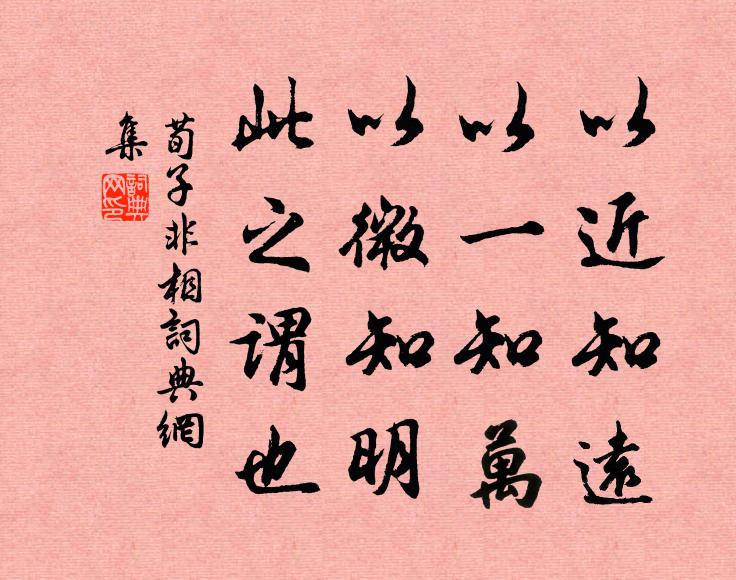 以近知遠
以一知萬
以微知明
此之謂也
荀子非相詞典網
集
詞典
网印